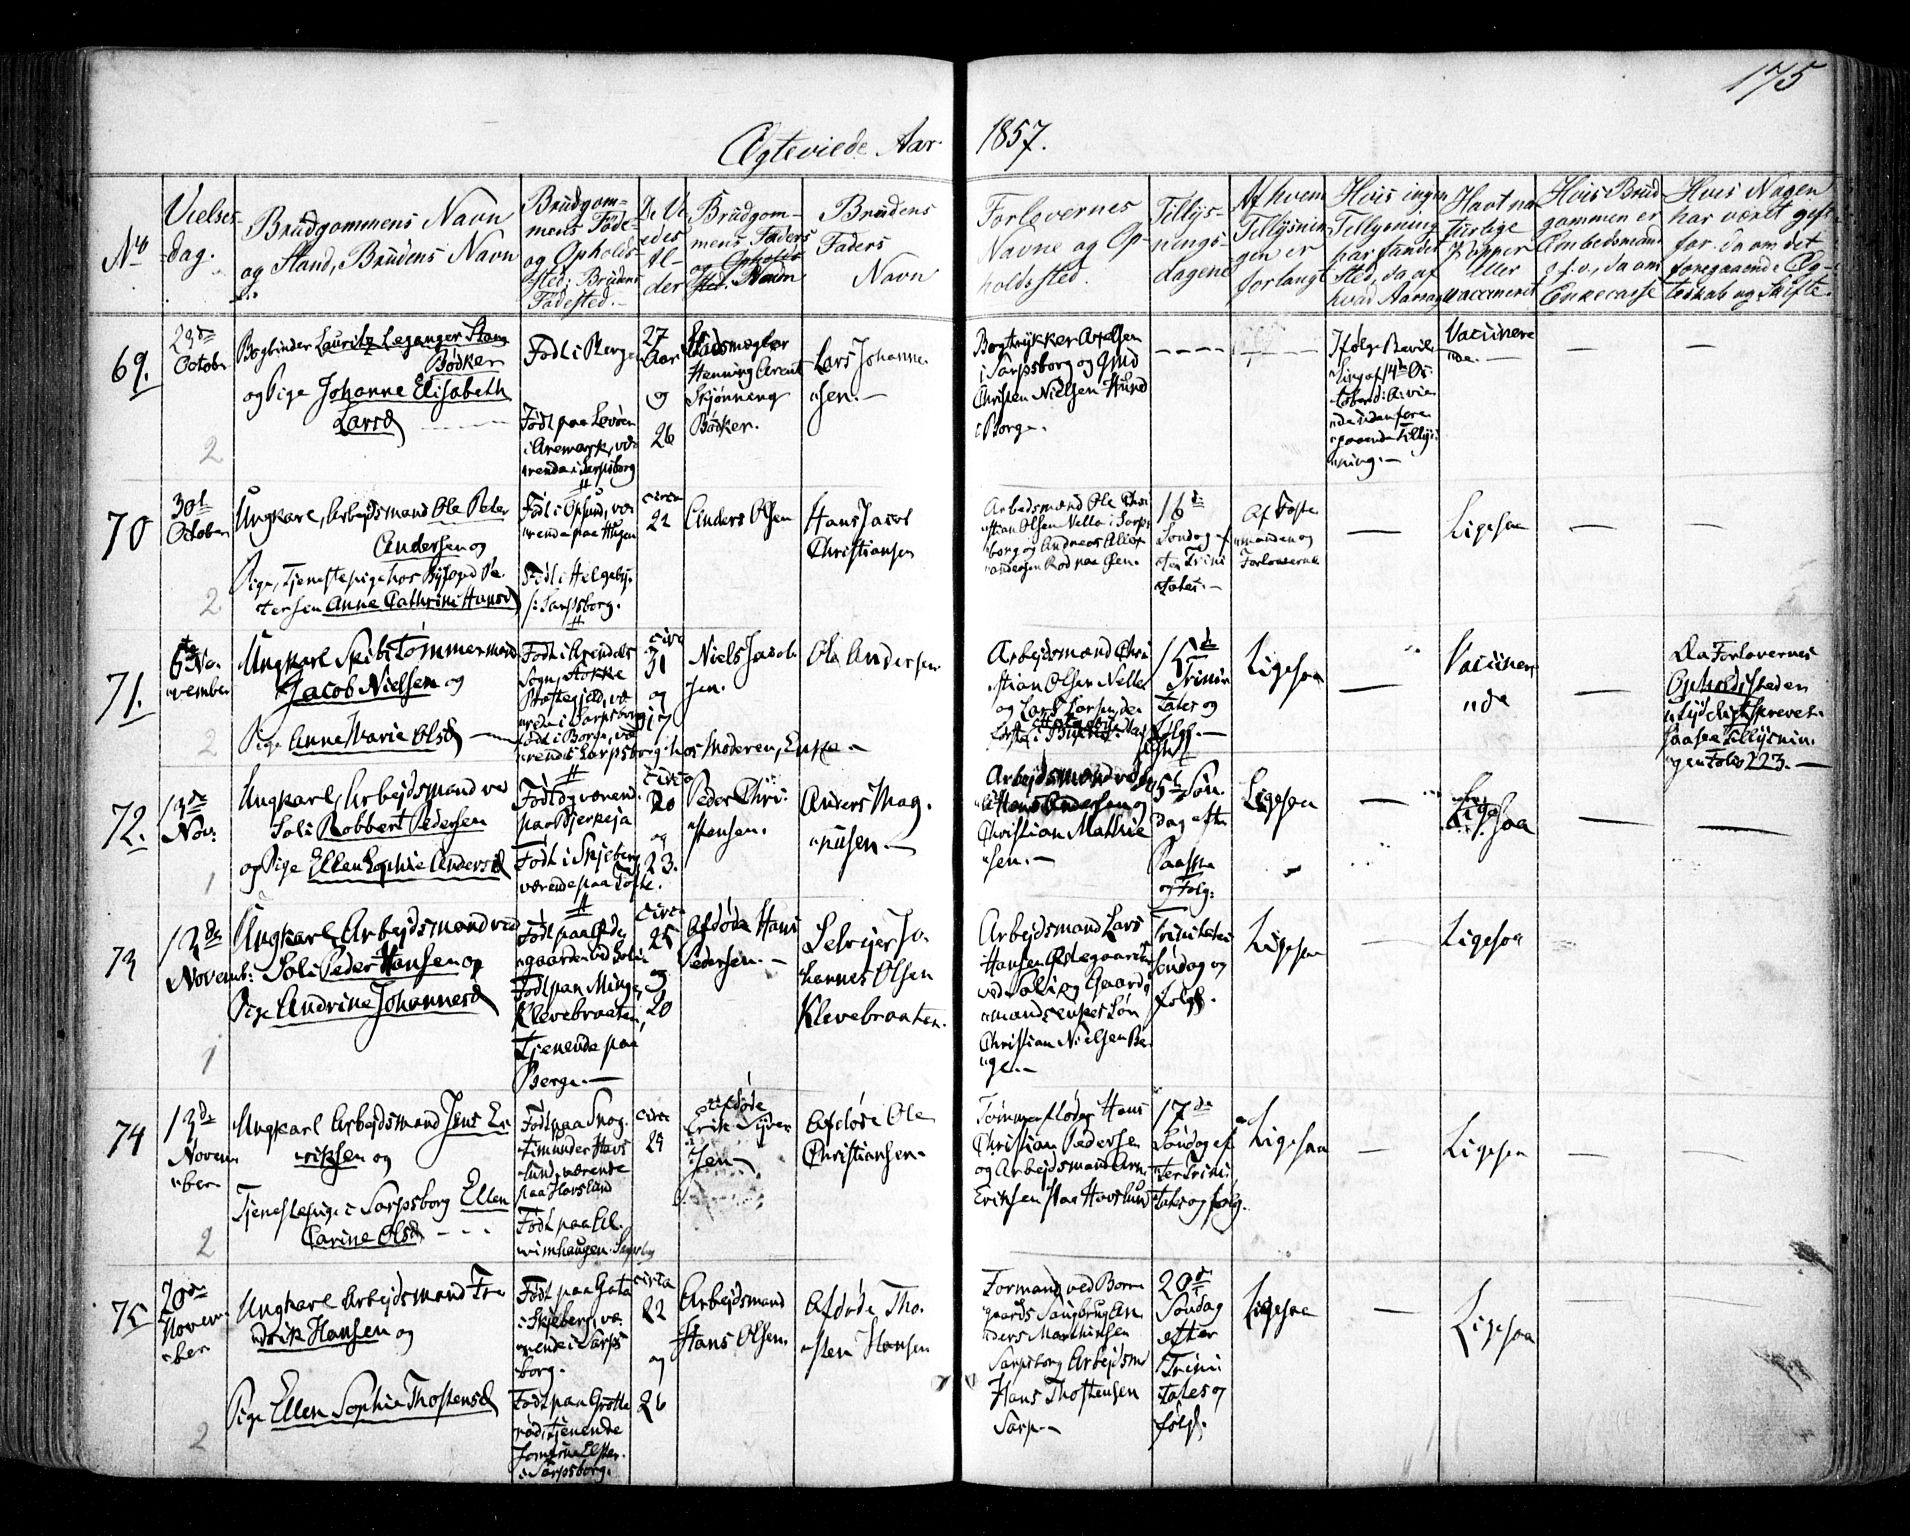 175
Ægteviede Aar 1857.
No
Vielses-
dag.
Brudgommens Navn
og Stand, Brudens Navn
Brudgom-
mens Føde-
og Opholds-
sted; Brudens
Fødested.
De Vi-
edes
Al-
der
Brudgom-
mens Faders
og Opholds-
sted. Navn
Brudens
Faders
Navn
Forlovernes
Navne og Op-
holdssted.
Tillys-
nings-
dagene
Af hvem
Tillysnin-
gen er
forlangt
Hvis ingen
Tillysning
har fundet
Sted, da af
hvad Aarsag
Havt na-
turlige
Kopper
eller
vaccineret
Hvis Brud-
gommen er
Embedsmand
o.s.v., da om
Enkecasse
Hvis Nogen
har været gift
før, da om det
foregaaende Æg-
teskab og Skifte.
69.
23de
October
Bogbinder Lauritz Leganger Stang
Bødker
og Pige Johanne Elisabeth
Larsd
2
Født i Bergen
Født paa Levøen
i Aremark, væ-
rende i Sarpsborg
27
Aar
og
26
Henning Arent
Skjønning
Bødker.
Lars Johanne-
sen.
Bogtrykker Axelsen
i Sarpsborg og
Christen Nielsen Hund
i Borge.
Ifølge Bevil-
ling af 14de Oc-
tober d: A: vie
uden fore-
gaaende Tillys-
ning.
Vaccinere-
de.
70
30te
October
Ungkarl, Arbejdsmand Ole Peter
Andersen og
Pige, Tjenestepige hos Byfoged Pe-
tersen Anne Cathrine Hansd
2
Født i Opsund, væ-
rende paa Haugen
Født i Helgeby
i Sarpsborg.
circa
22
Anders Olsen
Hans Jacob
Christiansen
Arbeidsmand Ole Chri-
stian Olsen Nelle i Sarps-
borg og Andreas
Andersen Rød paa Øen.
16de
Søndag ef-
ter Trini-
tatis.
Af Faste-
manden og
Forloverne
Ligesaa
71.
6te No-
vember
Ungkarl Skibstømmermand
Jacob Nielsen og
Pige Anne Marie Olsd
2
Født i Arendals
Sogn, Stokke
Præstegjeld, væ-
rende i Sarpsborg
Født i Borge, væ-
rende i Sarpsborg hos Moderen, Enke
circa
31
og
17
Niels Jacob-
sen.
Ole Andersen
Arbejdsmand Chri-
stian Olsen Nelle
og Lars Larsen
15de
Trini-
tatis og
følg.
Ligesaa
Vaccinere-
de
Da Forlovernes
Opholdssteden
Tillysnin-
gen Folio 223.
72.
13de
Nov:
Ungkarl, Arbejdsmand ved
Soli Robbert Pedersen
og Pige Ellen Sophie Andersd
1
Født og værende
paa Bjerkeja
Født i Skjeberg
værende paa Tofte.
circa
20
og
23.
Peder Chri-
stensen.
Anders Mag-
nusen.
Arbejdsmand ved
Hans Andersen og
Christian Mathie-
sen.
5te Søn-
dag efter
Paaske
og Følg.
Ligesaa
Ligesaa
73
13de
Novemb:
Ungkarl, Arbejdsmand ved
Soli Peder Hansen og
Pige Andrine Johannesd
1
Født paa Øde-
gaarden ved Soli
Født paa Minge,
Klevebraaten,
Tjenende paa
Berge.
circa
25
og
20
Afdøde Hans
Pedersen.
Selvejer Jo-
hannes Olsen
Klevebraaten.
Arbejdsmand Lars
Hansen Ødegaarden
ved Soli og Gaard-
mandsenkes Søn
Christian Nielsen Be-
ge.
Trinitatis
Søndag og
følg.
Ligesaa
Ligesaa
74
13de
Novem-
ber
Ungkarl Arbejdsmand Jens E-
riksen og
Tjenestepige i Sarpsborg Ellen
Carine Olsd
2
Født paa
under Hafs-
lund, værende
paa Hafslund
Født paa
vimhaugen Sarpsborg
circa
24
Afdøde
Erik
sen
Afdøde Ole
Christiansen
Tømmerfløder Hans
Christian Pedersen
og Arbejdsmand Arn.
Eriksen paa Hafslund
17de
Søndag ef-
ter Trini-
tatis og følg.
Ligesaa
Ligesaa
75
20de
Novem-
ber
Ungkarl Arbejdsmand Fre-
drik Hansen og
Pige Ellen Sophie Thostensd
2
Født paa Gata
i Skjeberg, væ-
rende i Sarps-
borg.
Født paa Grotte-
rød, tjenende
Jomfrue
i Sarpsborg.
circa
22
og
26
Arbejdsmand
Hans Olsen.
Afdøde Tho-
sten Hansen
Formand ved Borre-
gaards Saugbrug An-
ders Marthinsen
Sarpsborg Arbejdsmd
Hans Thostensen
Sarp.
20de
Søndag
efter
Trini-
tatis og
følg.
Ligesaa
Ligesaa